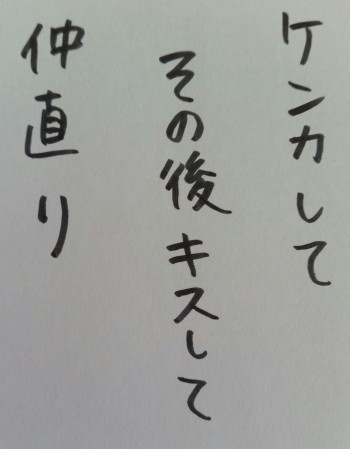 ケンカして
その後キスして
仲直り